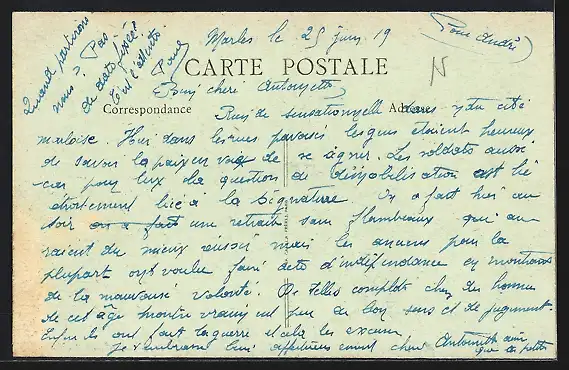 Quand partirons
nous? Pas
de date fixée!
Paul
Marles le 25 juin 19
Pour André
N
CARTE POSTALE
Bien chère Antoinette
Correspondance
Adresse
Rien de sensationnelle dans notre cité
marloise. Hier dans les rues les gens étaient heureux
de savoir la paix en de se signer. Les soldats aussi
car pour eux la question de démobilisation est
étroitement liée a la signature. On a fait hier au
soir on a fait une retraite sans flambeaux qui au
raient du mieux réussir mais les anciens pour la
plupart ont voulu faire acte d'indépendance en montrant
de la mauvaise volonté. De telles complots chez des hommes
de cet âge vraiment peu de bon sens et de jugement.
Enfin ils ont fait la guerre et cela les excuse.
Je t'embrasse bien affectueusement chère Antoinette ainsi
que les petits